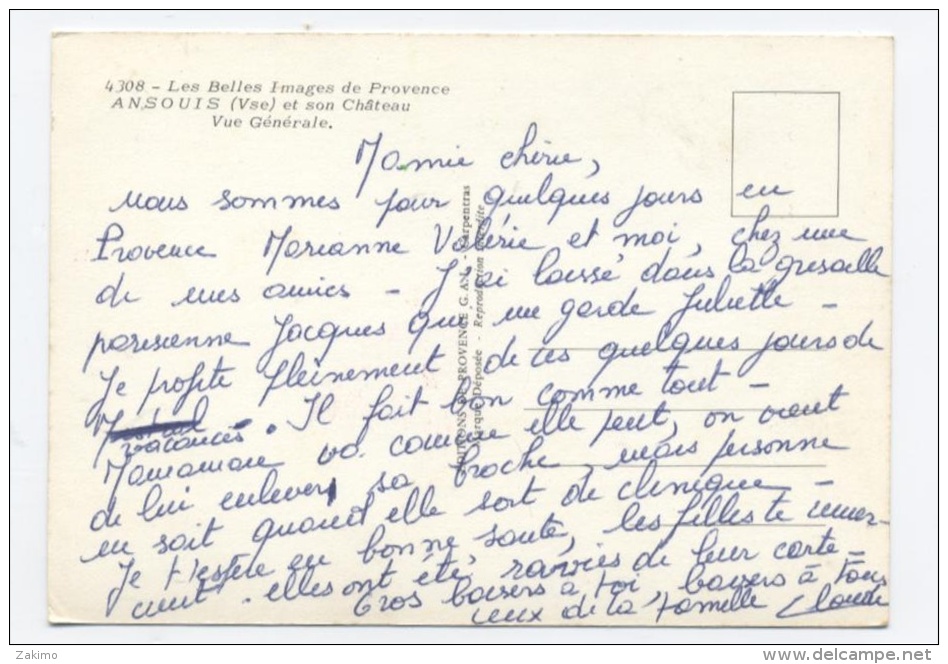 4308 – Les Belles Images de Provence
ANSOUIS (Vse) et son Château
Vue Générale.
Mamie chérie,
nous sommes pour quelques jours en
Provence Marianne Valérie et moi, chez une
de mes amies – J'ai laissé dans la grisaille
parisienne Jacques qui me garde Juliette –
Je profite pleinement de ces quelques jours de
vacances. Il fait bon comme tout –
Mamamare va comme elle peut, on vient
de lui enlever sa broche, mais personne
ne sait quand elle sort de clinique –
Je t'espère en bonne santé, les filles te remer-
cient. elles ont été ravies de leur carte –
Gros baisers à toi, baisers à tous
ceux de la famille Claude
EDITIONS DE PROVENCE G. AN. - Carpentras
Marque Déposée - Reproduction interdite
Zakimo
http://www.delcampe.net